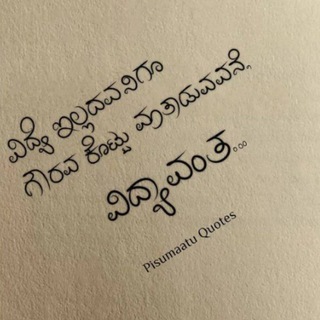 ವಿದ್ಯೆ ಇಲ್ಲದವನಿಗೂ
ಗೌರವ ಕೊಟ್ಟು ಮಾತಾಡುವವನೆ
ವಿದ್ಯಾವಂತ...
Pisumaatu Quotes